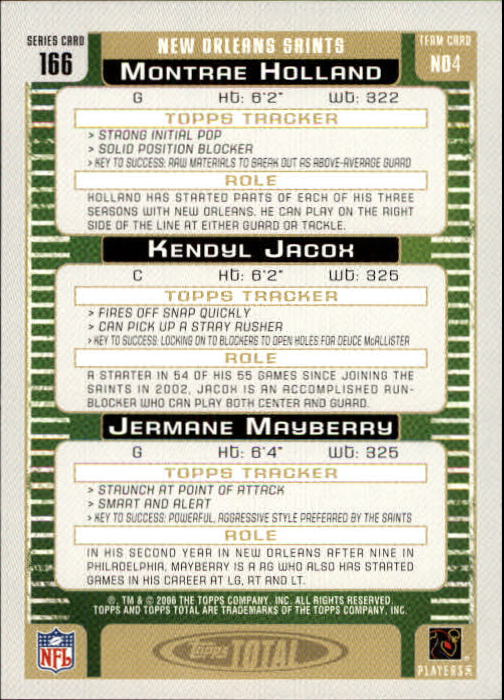 SERIES CARD
166
NEW ORLEANS SAINTS
TEAM CARD
NO4
MONTRAE HOLLAND
G Ht: 6'2" Wt: 322
TOPPS TRACKER
> STRONG INITIAL POP
> SOLID POSITION BLOCKER
> KEY TO SUCCESS: RAW MATERIALS TO BREAK OUT AS ABOVE-AVERAGE GUARD
ROLE
HOLLAND HAS STARTED PARTS OF EACH OF HIS THREE
SEASONS WITH NEW ORLEANS. HE CAN PLAY ON THE RIGHT
SIDE OF THE LINE AT EITHER GUARD OR TACKLE.
KENDYL JACOX
C Ht: 6'2" Wt: 325
TOPPS TRACKER
> FIRES OFF SNAP QUICKLY
> CAN PICK UP A STRAY RUSHER
> KEY TO SUCCESS: LOCKING ON TO BLOCKERS TO OPEN HOLES FOR DEUCE McALLISTER
ROLE
A STARTER IN 54 OF HIS 55 GAMES SINCE JOINING THE
SAINTS IN 2002, JACOX IS AN ACCOMPLISHED RUN-
BLOCKER WHO CAN PLAY BOTH CENTER AND GUARD.
JERMANE MAYBERRY
G Ht: 6'4" Wt: 325
TOPPS TRACKER
> STAUNCH AT POINT OF ATTACK
> SMART AND ALERT
> KEY TO SUCCESS: POWERFUL, AGGRESSIVE STYLE PREFERRED BY THE SAINTS
ROLE
IN HIS SECOND YEAR IN NEW ORLEANS AFTER NINE IN
PHILADELPHIA, MAYBERRY IS A RG WHO ALSO HAS STARTED
GAMES IN HIS CAREER AT LG, RT AND LT.
®, TM & © 2006 THE TOPPS COMPANY, INC. ALL RIGHTS RESERVED.
TOPPS AND TOPPS TOTAL ARE TRADEMARKS OF THE TOPPS COMPANY, INC.
NFL
Topps TOTAL
PLAYERS INC